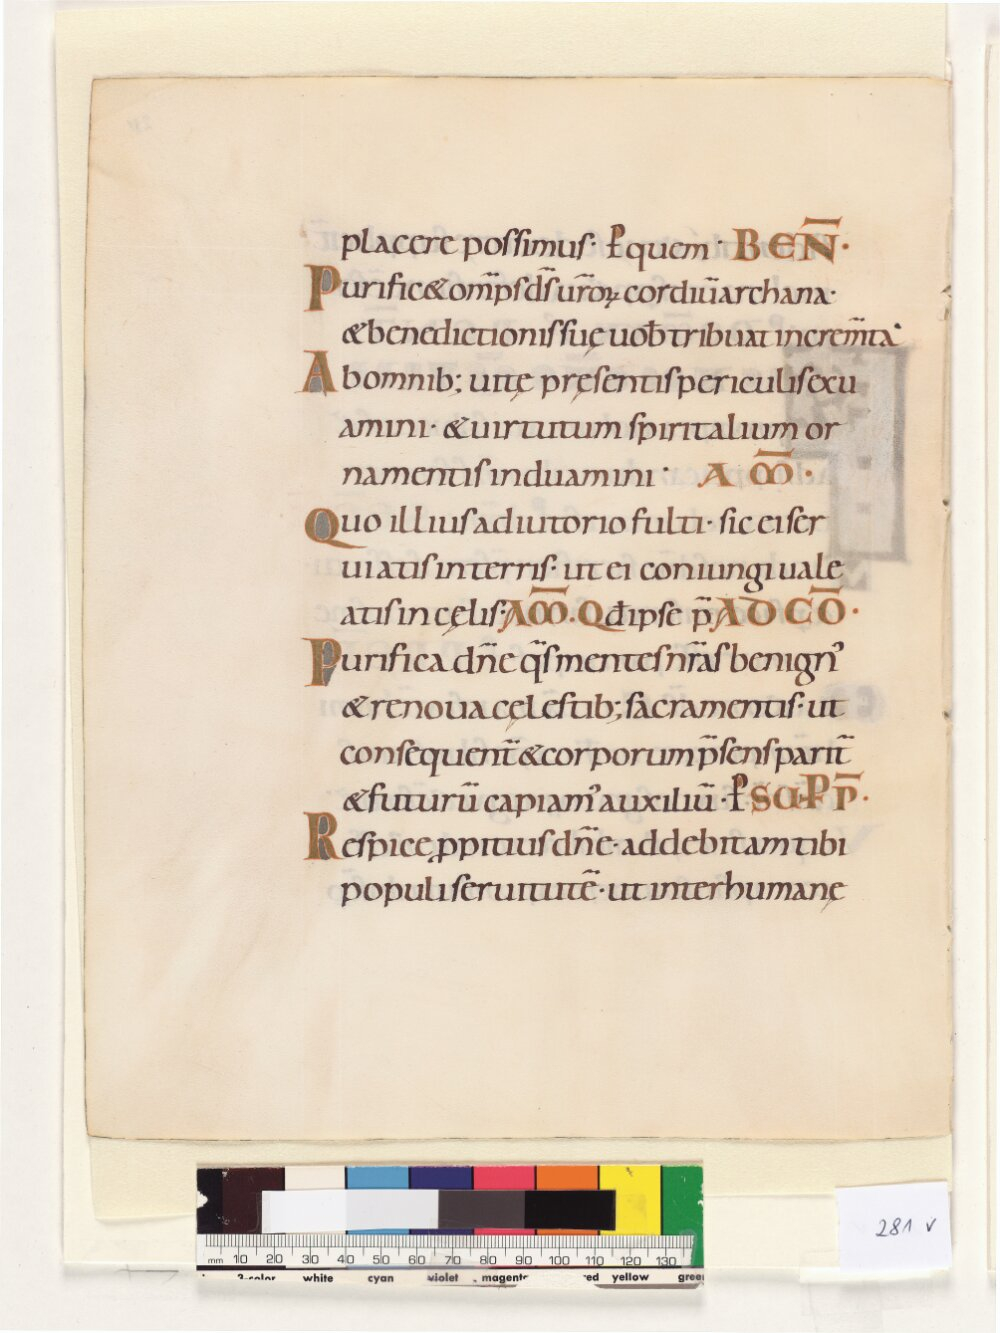 placere possimus· ꝑ quem· BEN̅·
Purific& om̅ps d̅s ur̅oꝝ cordiu̅ archana·
& benedictionis suę uob̅ tribuat increm̅ta·
Ab omnib; uitę pręsentis periculis exu
amini· & uirtutum spiritalium or
namentis induamini· AM̅·
Quo illius adiutorio fulti· sic ei ser
uiatis in terris· ut ei coniungi uale
atis in cęlis· AM̅. Qd̅ ipse p̅ AD CO̅·
Purifica dn̅e q̅s mentes nr̅as benignꝰ
& renoua cęlestib; sacramentis· ut
consequent̅ & corporum p̅sens parit̅
& futuru̅ capiamꝰ auxiliu̅· ꝑ S̅C̅·P P̅·
Respice ꝓpitius dn̅e· ad debitam tibi
populi seruitute̅· ut inter humanę
281 v
mm 10 20 30 40 50 60 70 80 90 100 110 120 130
3-color white cyan violet magenta red yellow green